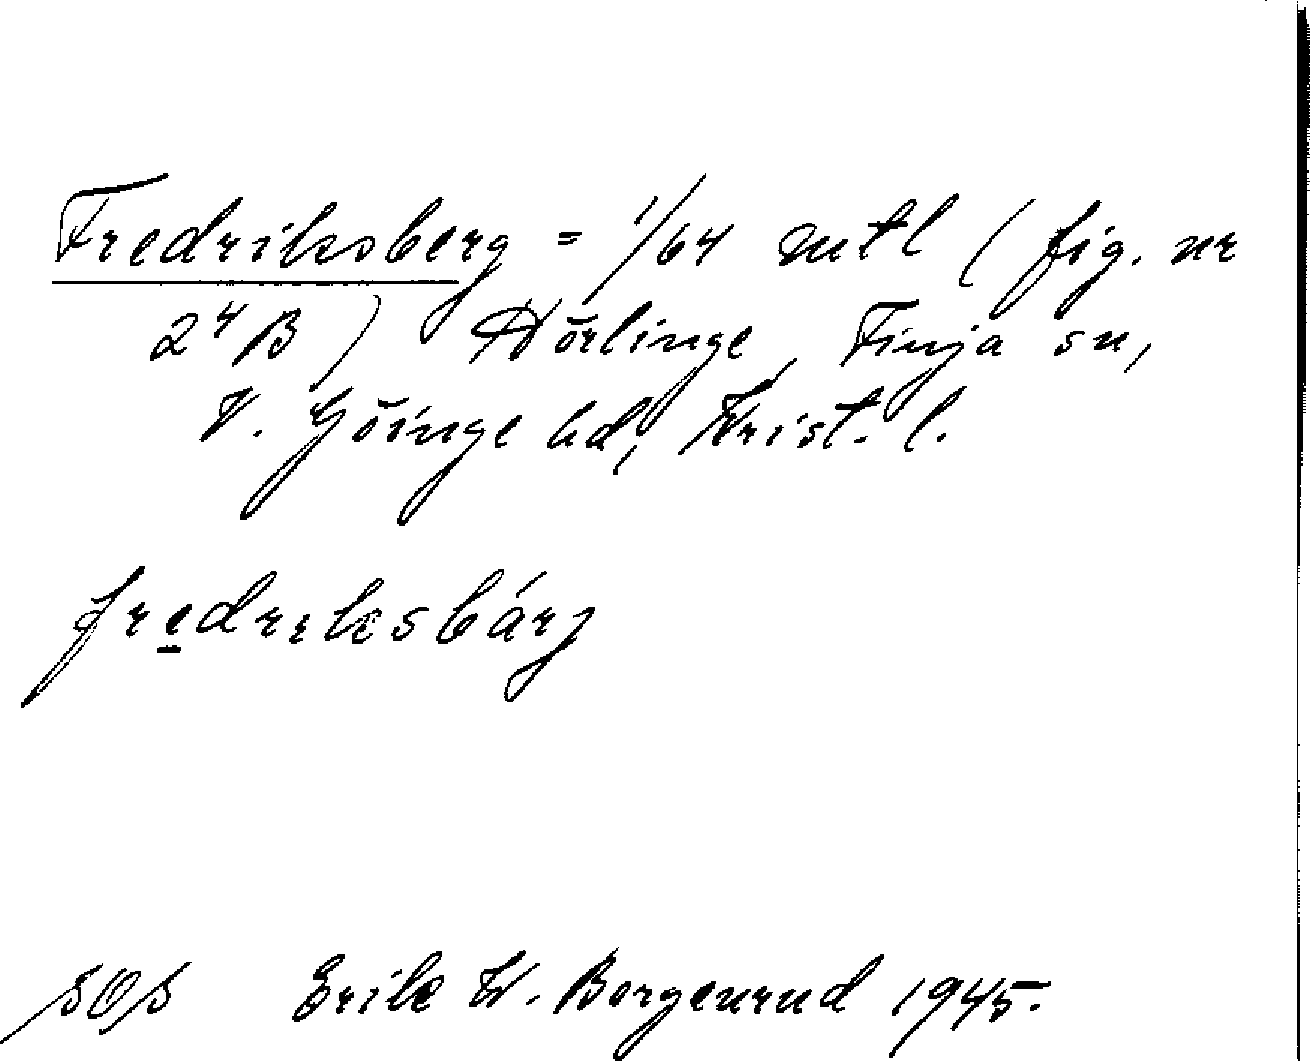 Fredriksberg = 1/64 mtl (fig. nr
2⁴B) Hörlinge, Finja sn,
V. Göinge hd, Krist. l.
fre̱drɩksbárj
SOS Erik W. Borgenrud 1945.